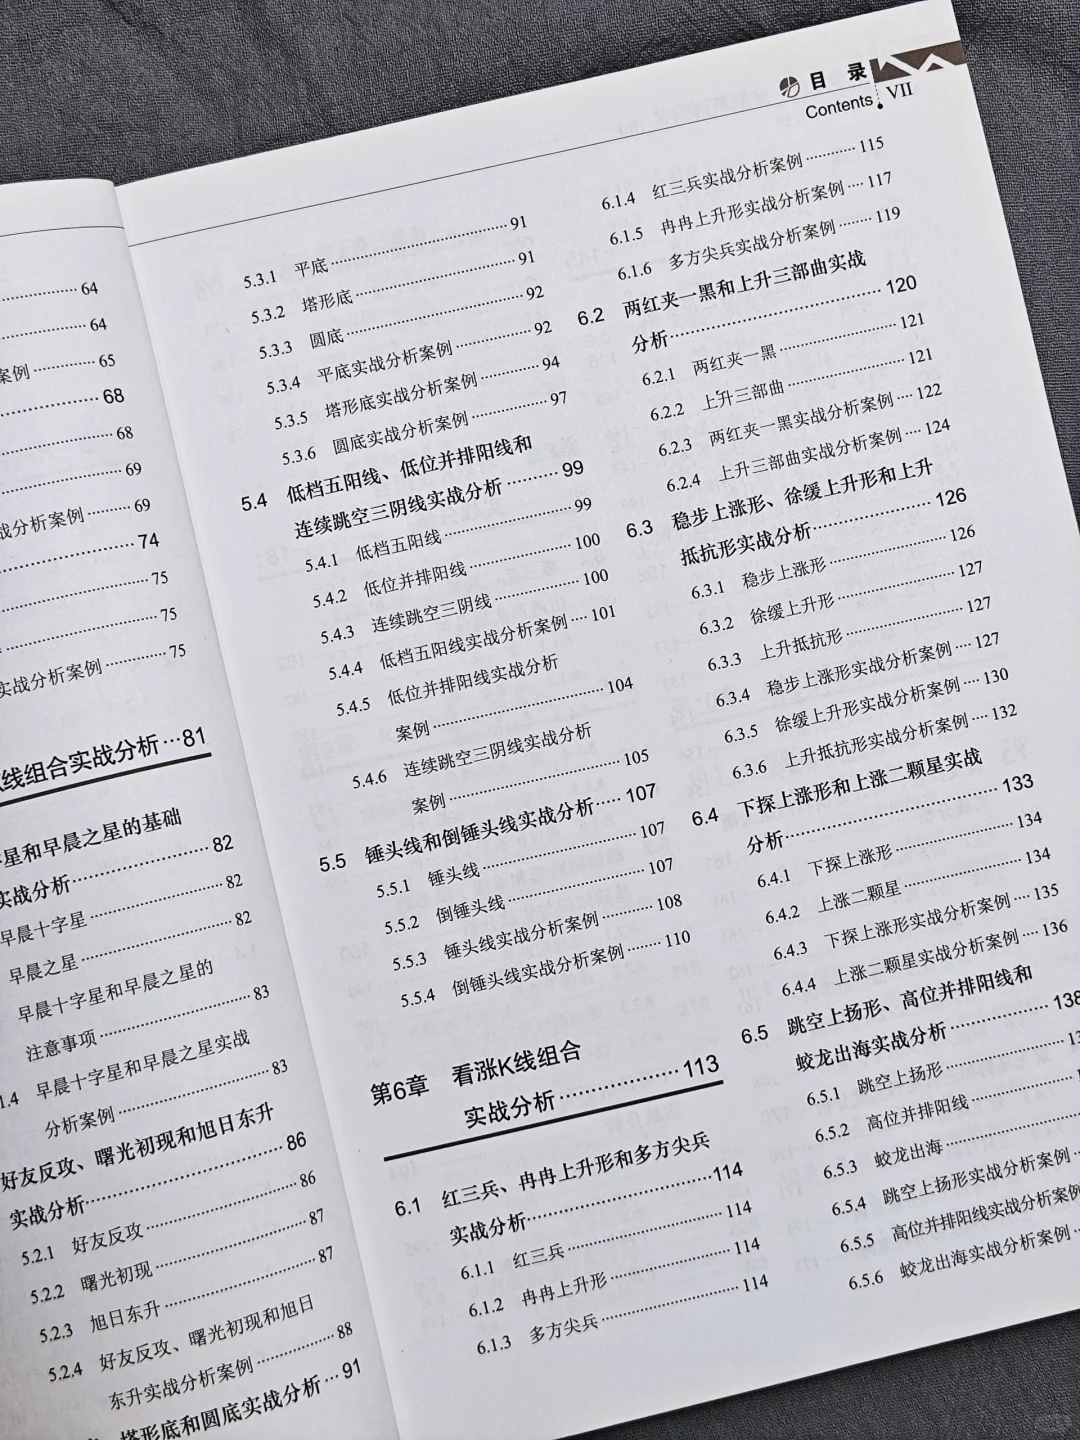 64
64
案例 65
68
68
69
战分析案例 69
74
75
75
实战分析案例 75
线组合实战分析 81
字星和早晨之星的基础
实战分析 82
早晨十字星 82
早晨之星 82
早晨十字星和早晨之星的
注意事项 83
1.4 早晨十字星和早晨之星实战
分析案例 83
好友反攻、曙光初现和旭日东升
实战分析 86
5.2.1 好友反攻 86
5.2.2 曙光初现 87
5.2.3 旭日东升 87
5.2.4 好友反攻、曙光初现和旭日
东升实战分析案例 88
塔形底和圆底实战分析 91
目 录
Contents VII
5.3.1 平底 91
5.3.2 塔形底 91
5.3.3 圆底 92
5.3.4 平底实战分析案例 92
5.3.5 塔形底实战分析案例 94
5.3.6 圆底实战分析案例 97
5.4 低档五阳线、低位并排阳线和
连续跳空三阴线实战分析 99
5.4.1 低档五阳线 99
5.4.2 低位并排阳线 100
5.4.3 连续跳空三阴线 100
5.4.4 低档五阳线实战分析案例 101
5.4.5 低位并排阳线实战分析
案例 104
5.4.6 连续跳空三阴线实战分析
案例 105
5.5 锤头线和倒锤头线实战分析 107
5.5.1 锤头线 107
5.5.2 倒锤头线 107
5.5.3 锤头线实战分析案例 108
5.5.4 倒锤头线实战分析案例 110
第6章 看涨K线组合
实战分析 113
6.1 红三兵、冉冉上升形和多方尖兵
实战分析 114
6.1.1 红三兵 114
6.1.2 冉冉上升形 114
6.1.3 多方尖兵 114
6.1.4 红三兵实战分析案例 115
6.1.5 冉冉上升形实战分析案例 117
6.1.6 多方尖兵实战分析案例 119
6.2 两红夹一黑和上升三部曲实战
分析 120
6.2.1 两红夹一黑 121
6.2.2 上升三部曲 121
6.2.3 两红夹一黑实战分析案例 122
6.2.4 上升三部曲实战分析案例 124
6.3 稳步上涨形、徐缓上升形和上升
抵抗形实战分析 126
6.3.1 稳步上涨形 126
6.3.2 徐缓上升形 127
6.3.3 上升抵抗形 127
6.3.4 稳步上涨形实战分析案例 127
6.3.5 徐缓上升形实战分析案例 130
6.3.6 上升抵抗形实战分析案例 132
6.4 下探上涨形和上涨二颗星实战
分析 133
6.4.1 下探上涨形 134
6.4.2 上涨二颗星 134
6.4.3 下探上涨形实战分析案例 135
6.4.4 上涨二颗星实战分析案例 136
6.5 跳空上扬形、高位并排阳线和
蛟龙出海实战分析 138
6.5.1 跳空上扬形
6.5.2 高位并排阳线
6.5.3 蛟龙出海
6.5.4 跳空上扬形实战分析案例
6.5.5 高位并排阳线实战分析案例
6.5.6 蛟龙出海实战分析案例